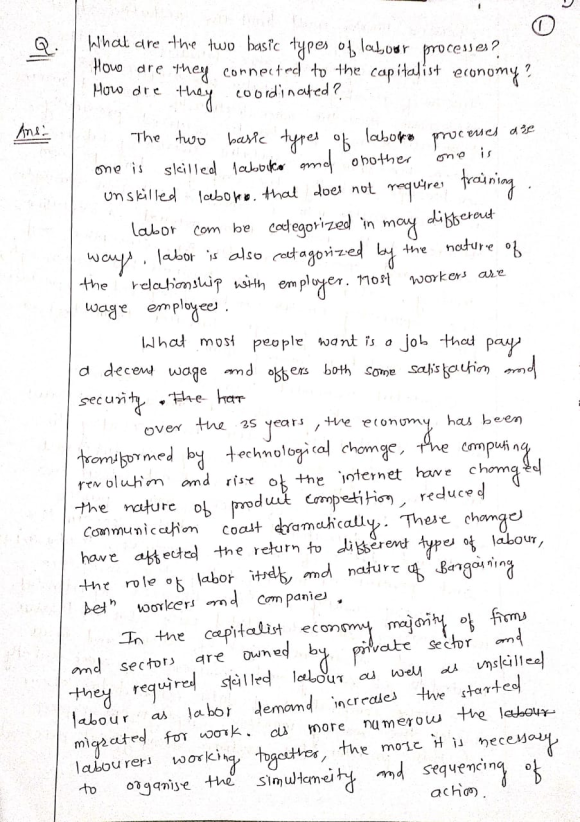 1
Q. What are the two basic types of labour processes?
How are they connected to the capitalist economy?
How are they coordinated?
Ans:- The two basic types of labors processes are
one is skilled labors and ohother one is
unskilled labors. that does not requires training.
labor can be categorized in may different
ways. labor is also catagorized by the nature of
the relationship with employer. Most workers are
wage employees.
What most people want is a job that pays
a decent wage and offers both some satisfaction and
security. The har
over the 35 years, the economy has been
transformed by technological change, the computing
revolution and rise of the internet have changed
the nature of product competition, reduced
communication coast dramatically. These changes
have affected the return to different types of labour,
the role of labor itself, and nature of Bargaining
betn workers and companies.
In the capitalist economy majority of firms
and sectors are owned by private sector and
they required skilled labour as well as unskilled
labour as labor demand increases the started
migrated for work. as more numerous the labour
labourers working togather, the more it is necessary
to organise the simultaneity and sequencing of
action.